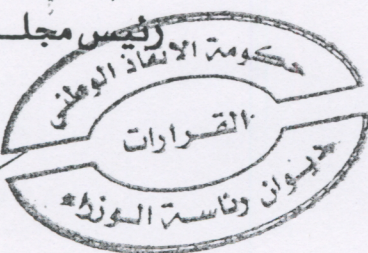 رئيس مجلـ
حكومة الانقاذ الوطني
القـرارات
ديـوان رئاسـة الـوزراء